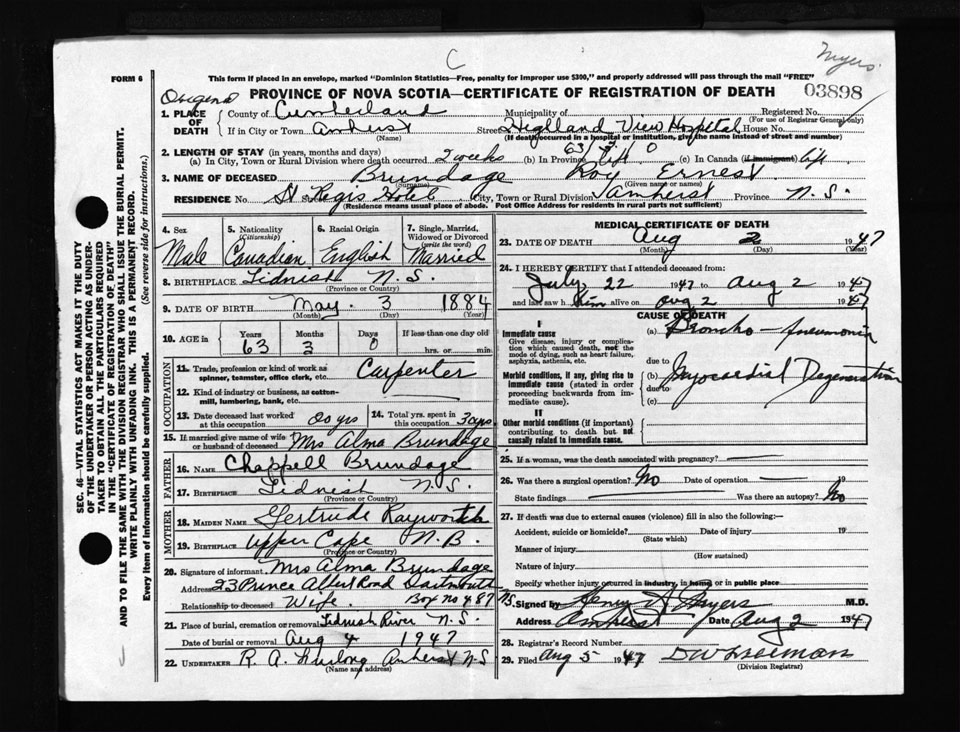 C
Myers.
FORM 6
This form if placed in an envelope, marked "Dominion Statistics—Free, penalty for improper use $300," and properly addressed will pass through the mail "FREE"
PROVINCE OF NOVA SCOTIA—CERTIFICATE OF REGISTRATION OF DEATH
03898
1. PLACE OF DEATH
County of Cumberland Municipality of Registered No.
(For use of Registrar General only)
If in City or Town Amherst Street Highland View Hospital House No.
(Name) (If death occurred in a hospital or institution, give the name instead of street and number)
2. LENGTH OF STAY (in years, months and days) 63 0
(a) In City, Town or Rural Division where death occurred 2 weeks (b) In Province life (c) In Canada (if immigrant) life
3. NAME OF DECEASED Brundage Roy Ernest
(Surname) (Given name or names)
RESIDENCE No. St Regis Hotel City, Town or Rural Division Amherst Province N.S.
(Residence means usual place of abode. Post Office Address for residents in rural parts not sufficient)
4. Sex
Male
5. Nationality
(Citizenship)
Canadian
6. Racial Origin
English
7. Single, Married, Widowed or Divorced
(write the word)
Married
8. BIRTHPLACE Tidnish N.S.
(Province or Country)
9. DATE OF BIRTH May. 3 1884
(Month) (Day) (Year)
10. AGE in
Years Months Days If less than one day old
63 3 0 hrs. or min.
OCCUPATION
11. Trade, profession or kind of work as spinner, teamster, office clerk, etc. Carpenter
12. Kind of industry or business, as cotton-mill, lumbering, bank, etc.
13. Date deceased last worked at this occupation yrs 14. Total yrs. spent in this occupation 30 yrs.
15. If married give name of wife or husband of deceased Mrs Alma Brundage
FATHER
16. NAME Chappell Brundage
17. BIRTHPLACE Tidnish N.S.
(Province or Country)
MOTHER
18. MAIDEN NAME Gertrude Rayworth
19. BIRTHPLACE Upper Cape N.B.
(Province or Country)
20. Signature of informant Mrs Alma Brundage
Address 23 Prince Albert Road Dartmouth
Relationship to deceased Wife. Box no 487 N.S.
21. Place of burial, cremation or removal Tidnish River N.S.
Date of burial or removal Aug 4 1947
22. UNDERTAKER R. A. Furlong Amherst N.S
(Name and address)
MEDICAL CERTIFICATE OF DEATH
23. DATE OF DEATH Aug 2 1947
(Month) (Day) (Year)
24. I HEREBY CERTIFY that I attended deceased from:
July 22 1947 to Aug 2 1947
and last saw him alive on Aug 2 1947
CAUSE OF DEATH
I
Immediate cause
Give disease, injury or complication which caused death, not the mode of dying, such as heart failure, asphyxia, asthenia, etc.
(a) Broncho-pneumonia
due to
Morbid conditions, if any, giving rise to immediate cause (stated in order proceeding backwards from immediate cause).
(b) Myocardial Degeneration
due to
(c)
II
Other morbid conditions (if important) contributing to death but not causally related to immediate cause.
25. If a woman, was the death associated with pregnancy?
26. Was there a surgical operation? No Date of operation 19
State findings Was there an autopsy? No
27. If death was due to external causes (violence) fill in also the following:—
Accident, suicide or homicide? Date of injury 19
(State which)
Manner of injury
(How sustained)
Nature of injury
Specify whether injury occurred in industry, in home or in public place
Signed by Henry A Myers M.D.
Address Amherst Date Aug 2 1947
28. Registrar's Record Number
29. Filed Aug 5 1947 DW Freeman
(Division Registrar)
SEC. 46—VITAL STATISTICS ACT MAKES IT THE DUTY OF THE UNDERTAKER OR PERSON ACTING AS UNDERTAKER TO OBTAIN ALL THE PARTICULARS REQUIRED IN THE "CERTIFICATE OF REGISTRATION OF DEATH" AND TO FILE THE SAME WITH THE DIVISION REGISTRAR WHO SHALL ISSUE THE BURIAL PERMIT.
WRITE PLAINLY WITH UNFADING INK. THIS IS A PERMANENT RECORD.
Every item of information should be carefully supplied. (See reverse side for instructions.)